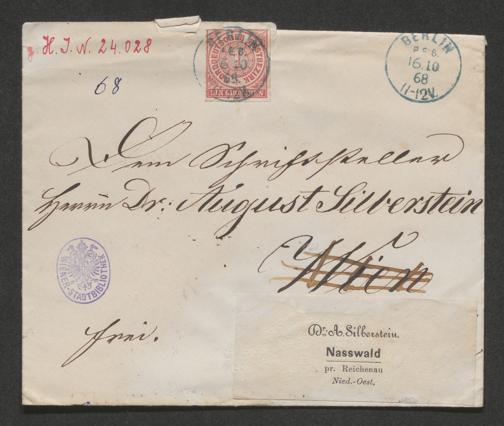 H. I. N. 24.028
68
BERLIN
P.E.6.
16.10
68
11-12V.
NORDDEUTSCHER POSTBEZIRK
EIN GROSCHEN
BERLIN
16.10
68
Dem Schriftsteller
Herrn Dr. August Silberstein
Wien
WIENER-STADTBIBLIOTHEK
frei.
Dr. A. Silberstein.
Nasswald
pr. Reichenau
Nied.-Oest.